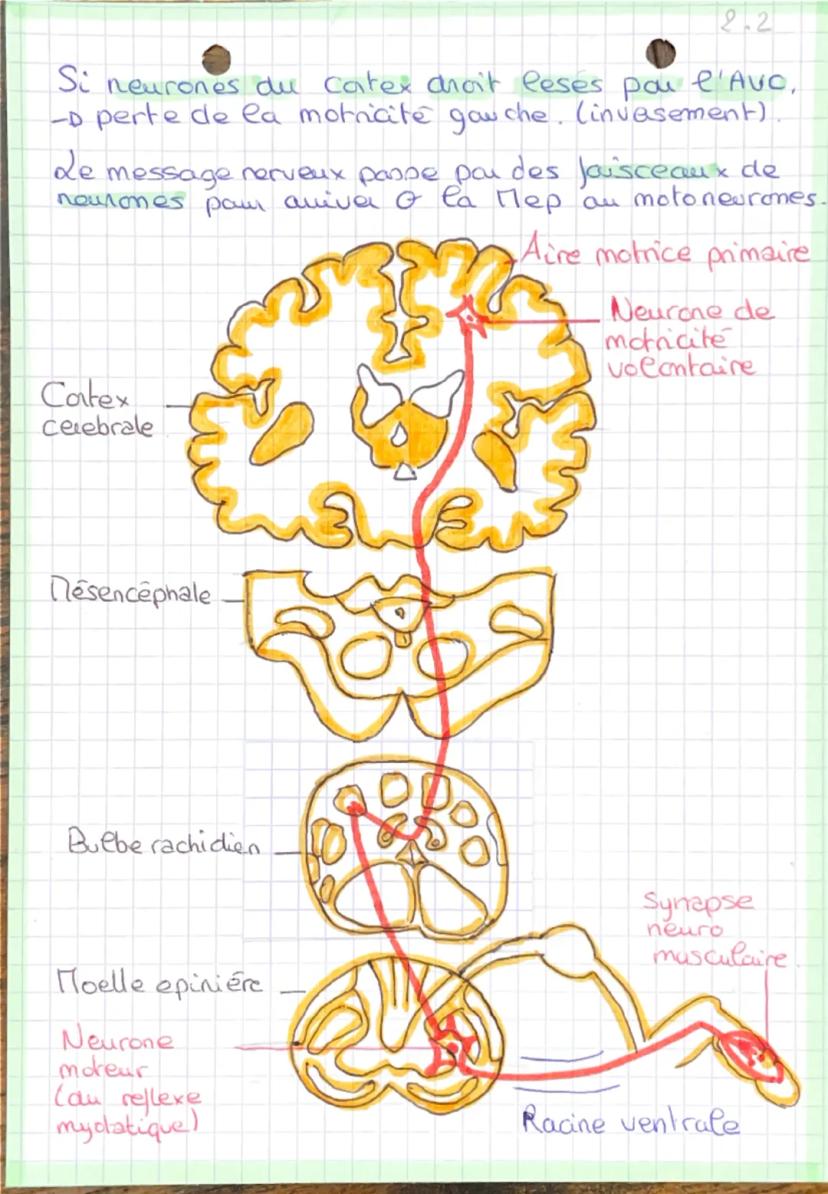 2.2
Si neurones du cortex droit lésés par l'AVC,
→ perte de la motricité gauche. (inversement).
Le message nerveux passe par des faisceaux de
neurones pour arriver à la Mep au motoneurones.
Aire motrice primaire
Neurone de
motricité
volontaire
Cortex
cerebrale
Mésencéphale
Bulbe rachidien
Synapse
neuro
musculaire
Moelle epiniére
Neurone
moteur
(du reflexe
myotatique)
Racine ventrale